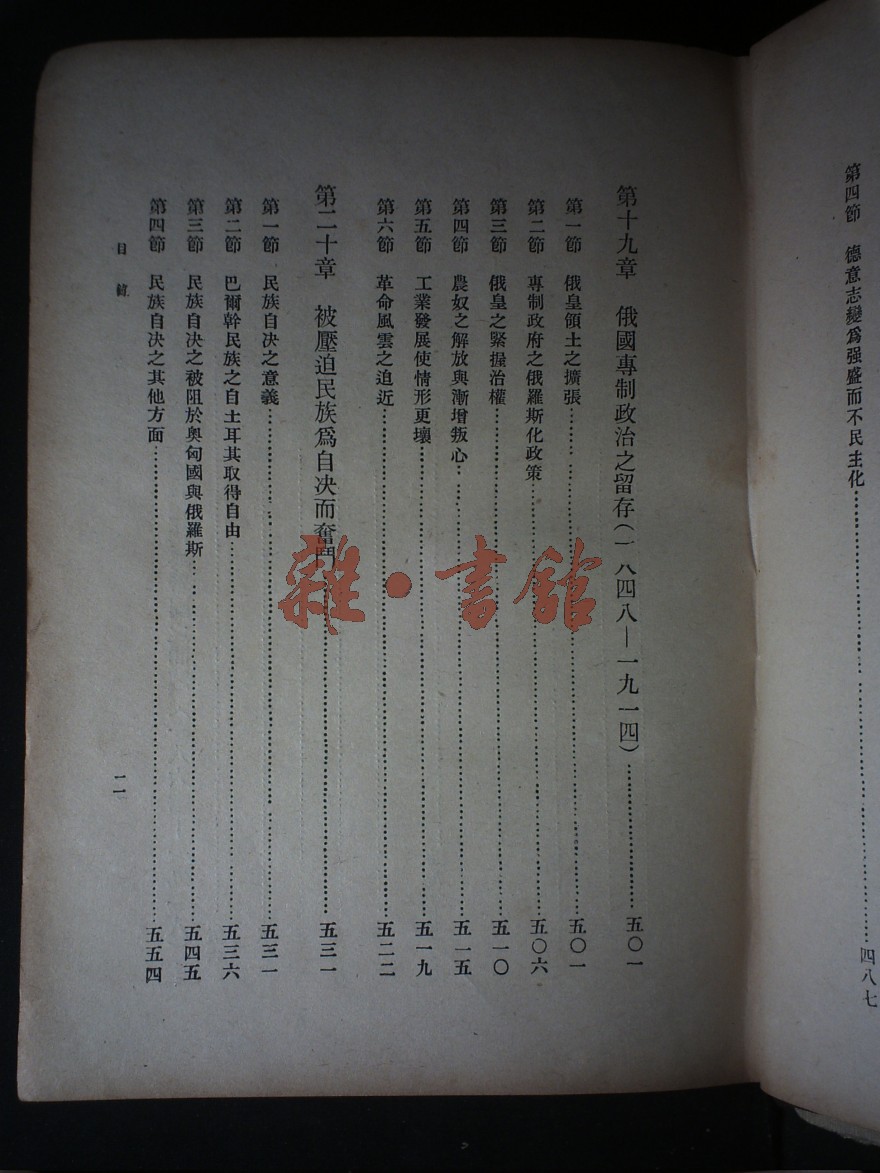 第四節　德意志變爲强盛而不民主化……四八七
第十九章　俄國專制政治之留存(一八四八—一九一四)……五〇一
第一節　俄皇領土之擴張……五〇一
第二節　專制政府之俄羅斯化政策……五〇六
第三節　俄皇之緊握治權……五一〇
第四節　農奴之解放與漸增叛心……五一五
第五節　工業發展使情形更壞……五一九
第六節　革命風雲之迫近……五二二
第二十章　被壓迫民族爲自决而奮鬥……五三一
第一節　民族自决之意義……五三一
第二節　巴爾幹民族之自土耳其取得自由……五三六
第三節　民族自决之被阻於奥匈國與俄羅斯……五四五
第四節　民族自决之其他方面……五五四
目錄　一一
雜·書館